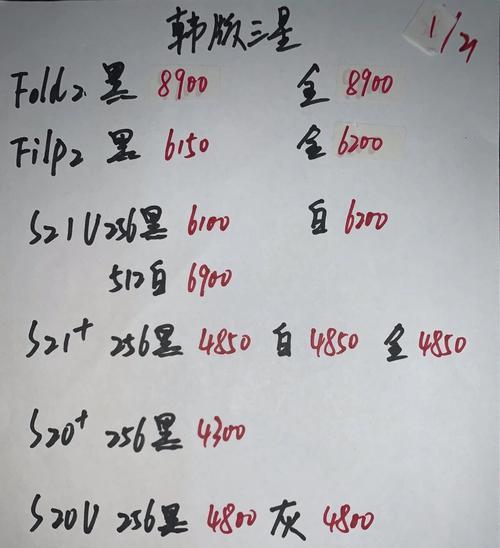 韩版三星 1/21
Fold2 黑 8900 金 8900
Filp2 黑 6150 金 6200
S21U 256黑 6100 白 6200
512白 6900
S21+ 256黑 4850 白 4850 金 4850
S20+ 256黑 4300
S20U 256黑 4800 灰 4800